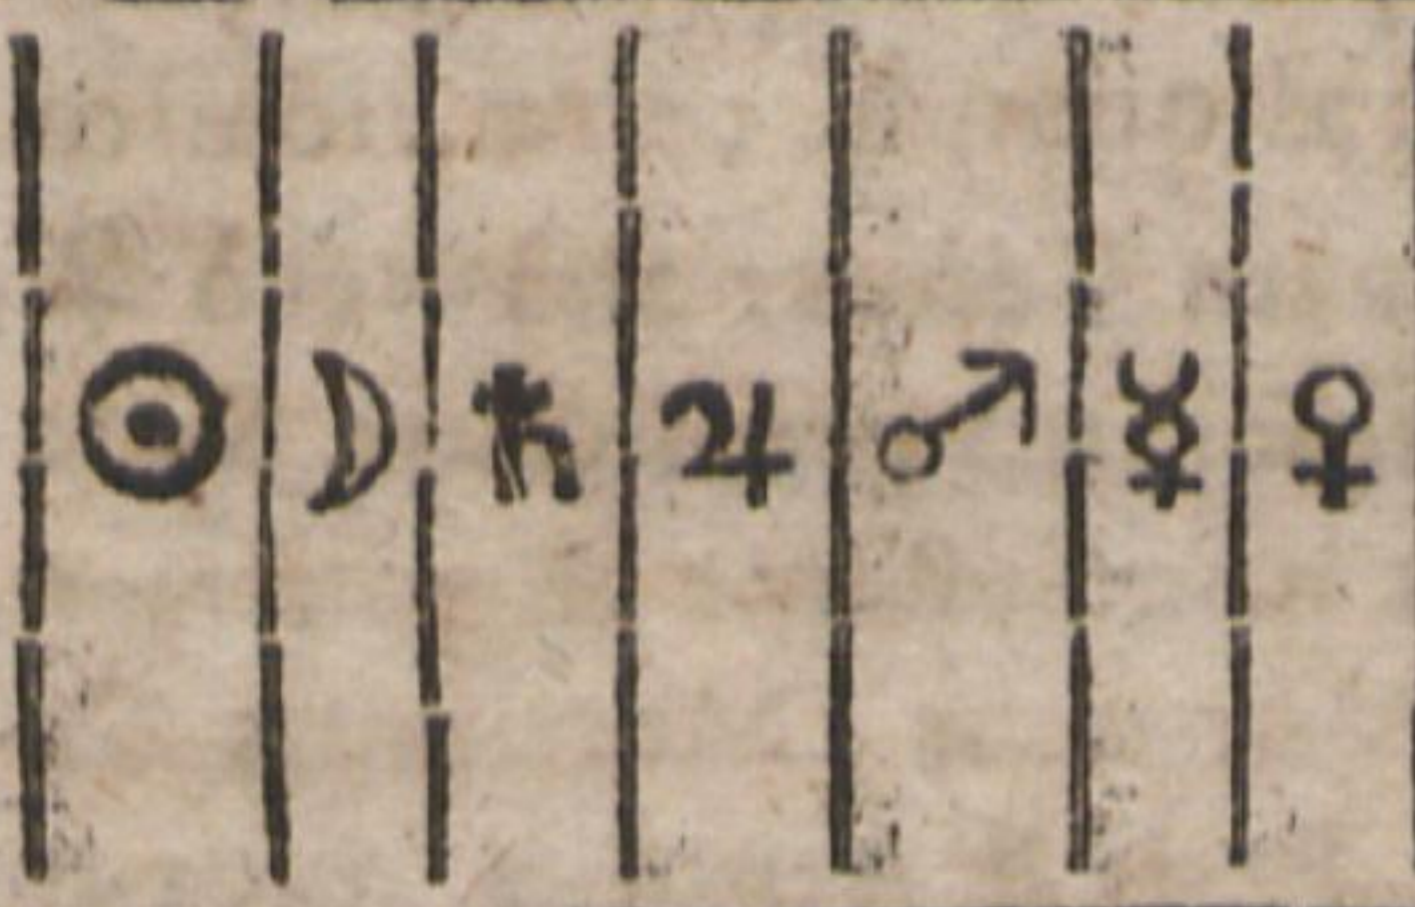 ☉ ☽ ♄ ♃ ♂ ☿ ♀